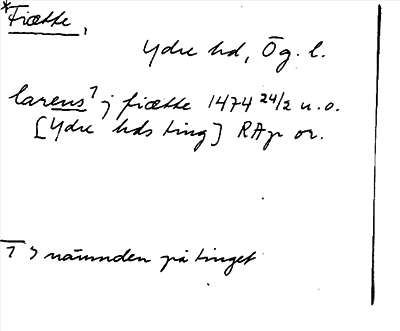 *Fiætte,
Ydre hd, Ög. l.
larens⁷ j fiætte 1474 24/2 u. o.
[Ydre hds ting] RAp or.
7 > nämnden på tinget